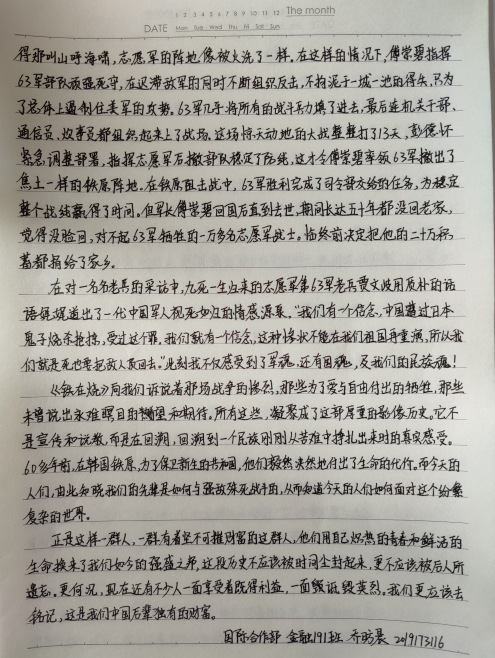 1 2 3 4 5 6 7 8 9 10 11 12 The month
DATE Mon Tue Wed Thu Fri Sat Sun
得那叫山呼海啸,志愿军的阵地像被火洗了一样。在这样的情况下,傅崇碧指挥
63军部队顽强死守,在迟滞敌军的同时不断组织反击,不拘泥于一城一池的得失,只为
了总体上遏制住美军的攻势。63军几乎将所有的战斗兵力填了进去,最后连机关干部、
通信员、炊事员都组织起来上了战场。这场惊天动地的大战整整打了13天,彭德怀
紧急调整部署,指挥志愿军后撤部队稳定了防线,这才令傅崇碧率领63军撤出了
焦土一样的铁原阵地。在铁原阻击战中,63军胜利完成了司令部交给的任务,为稳定
整个战线赢得了时间。但军长傅崇碧回国后直到去世,期间长达五十年都没回老家,
觉得没脸回,对不起63军牺牲的一万多名志愿军战士。临终前决定把他的二十万积
蓄都捐给了家乡。
在对一名名老兵的采访中,九死一生归来的志愿军第63军老兵贾文岐用质朴的话
语娓娓道出了一代中国军人视死如归的情感源泉。“我们有一个信念,中国遭过日本
鬼子烧杀抢掠,受过这个罪,我们就有一个信念,这种惨状不能在我们祖国再重演,所以我
们就是死也要把敌人顶回去。”此刻我不仅感受到了军魂,还有国魂,及我们的民族魂!
《铁在烧》向我们诉说着那场战争的惨烈,那些为了爱与自由付出的牺牲,那些
未曾说出永难瞑目的渴望和期待。所有这些,凝聚成了这部厚重的影像历史。它不
是宣传和说教,而是在回溯,回溯到一个民族刚刚从苦难中挣扎出来时的真实感受。
60多年前,在韩国铁原,为了保卫新生的共和国,他们毅然决然地付出了生命的代价。而今天的
人们,由此知晓我们的先辈是如何与强敌殊死战斗的,从而知道今天的人们如何面对这个纷繁
复杂的世界。
正是这样一群人,一群有着坚不可摧财富的这群人,他们用自己炽热的青春和鲜活的
生命换来了我们如今的强盛之邦,这段历史不应该被时间尘封起来,更不应该被后人所
遗忘。更何况,现在还有不少人一面享受着既得利益,一面诋毁英烈。我们更应该去
铭记,这是我们中国后辈独有的财富。
国际合作部 金融191班 乔晓晨 2019173116